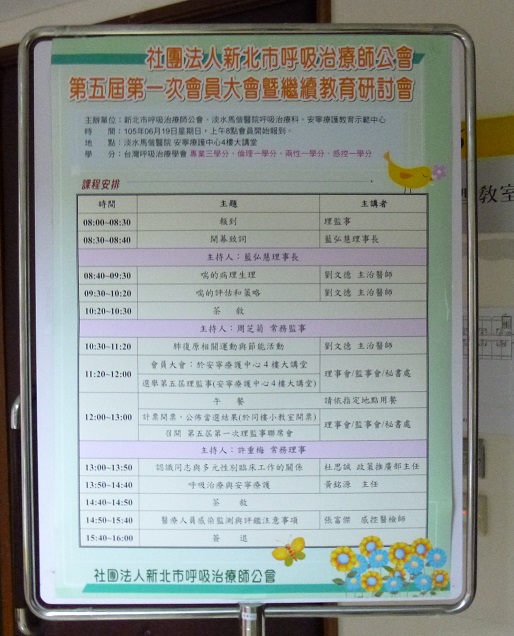 社團法人新北市呼吸治療師公會
第五屆第一次會員大會暨繼續教育研討會
主辦單位：新北市呼吸治療師公會、淡水馬偕醫院呼吸治療科、安寧療護教育示範中心
時　間：105年06月19日星期日，上午8點會員開始報到。
地　點：淡水馬偕醫院 安寧療護中心4樓大講堂
學　分：台灣呼吸治療學會 專業三學分、倫理一學分、兩性一學分、感控一學分
課程安排
時間 主題 主講者
08:00~08:30 報到 理監事
08:30~08:40 開幕致詞 藍弘慧理事長
主持人：藍弘慧理事長
08:40~09:30 喘的病理生理 劉文德 主治醫師
09:30~10:20 喘的評估和策略 劉文德 主治醫師
10:20~10:30 茶　敘
主持人：周芝菊 常務監事
10:30~11:20 肺復原相關運動與節能活動 劉文德 主治醫師
11:20~12:00 會員大會：於安寧療護中心4樓大講堂 理事會/監事會/秘書處
選舉第五屆理監事(安寧療護中心4樓大講堂)
12:00~13:00 午　餐 請依指定地點用餐
計票開票，公佈當選結果(於同樓小教室開票) 理事會/監事會/秘書處
召開 第五屆第一次理監事聯席會
主持人：許重梅 常務理事
13:00~13:50 認識同志與多元性別臨床工作的關係 杜思誠 政策推廣部主任
13:50~14:40 呼吸治療與安寧療護 黃銘源 主任
14:40~14:50 茶　敘
14:50~15:40 醫療人員感染監測與評鑑注意事項 張富傑 感控醫檢師
15:40~16:00 簽　退
社團法人新北市呼吸治療師公會
教室